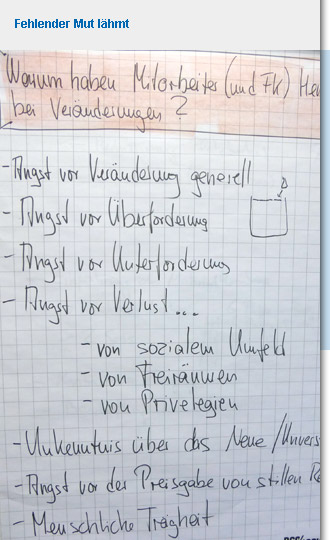 Fehlender Mut lähmt
Warum haben Mitarbeiter (und FK)
bei Veränderungen?
- Angst vor Veränderung generell
- Angst vor Überforderung
- Angst vor Unterforderung
- Angst vor Verlust...
- von sozialem Umfeld
- von Freiräumen
- von Privelegien
- Unkenntnis über das Neue /
- Angst vor der Preisgabe von stillen
- Menschliche Trägheit